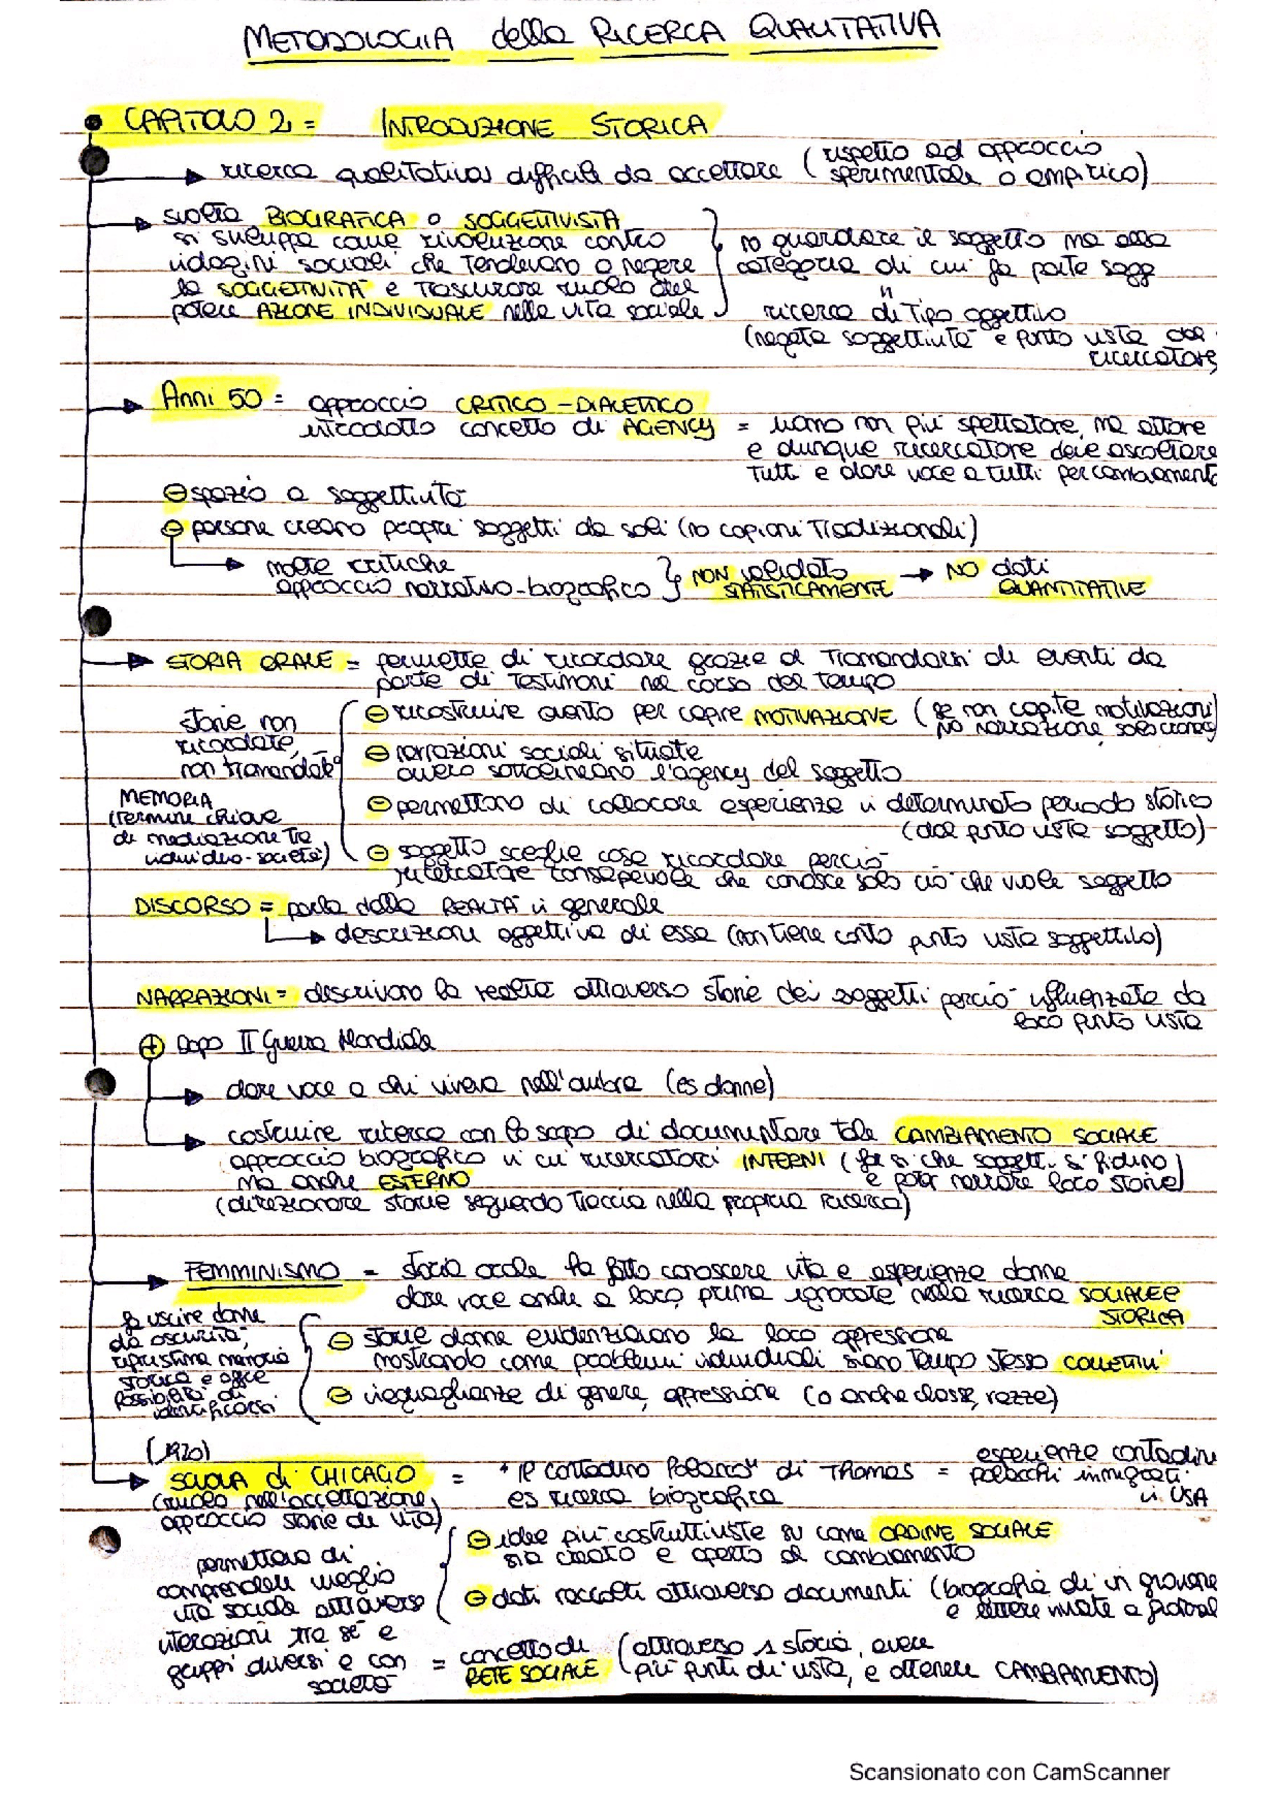 METODOLOGIA della RICERCA QUALITATIVA
CAPITOLO 2 = INTRODUZIONE STORICA
ricerca qualitativa difficile da accettare (rispetto ad approccio
sperimentale o empirico)
svolta BIOGRAFICA o SOGGETTIVISTA
si sviluppa come rivoluzione contro
indagini sociali che tendevano a negare
la SOGGETTIVITÀ e trascurare ruolo del
potere AZIONE INDIVIDUALE nella vita sociale
no guardare il soggetto ma alla
categoria di cui fa parte sogg
=
ricerca di tipo oggettivo
(negata soggettività e punto vista del
ricercatore
Anni 50 = approccio CRITICO-DIALETTICO
introdotto concetto di AGENCY = uomo non più spettatore, ma attore
e dunque ricercatore deve ascoltare
tutti e dare voce a tutti per cambiament
spazio a soggettività
persone creano propri soggetti da soli (no copioni tradizionali)
molte critiche
approccio narrativo-biografico
NON validato
STATISTICAMENTE → NO dati
QUANTITATIVE
STORIA ORALE = permette di ricordare grazie al tramandarsi di eventi da
parte di testimoni nel corso del tempo
storie non
ricordate,
non tramandate
MEMORIA
(termine chiave
di mediazione tra
individuo-società)
ricostruire evento per capire MOTIVAZIONE (se non capite motivazioni
no narrazione, solo
narrazioni sociali situate
ovvero sottolineano l'agency del soggetto
permettono di collocare esperienze in determinato periodo storico
(dal punto vista soggetto)
soggetto sceglie cosa ricordare perciò
ricercatore consapevole che conosce solo ciò che vuole soggetto
DISCORSO = parla della REALTÀ in generale
descrizione oggettiva di essa (non tiene conto punto vista soggettivo)
NARRAZIONI = descrivono la realtà attraverso storie dei soggetti perciò influenzate da
loro punto vista
Dopo II Guerra Mondiale
dare voce a chi viveva nell'ombra (es donne)
costruire ricerca con lo scopo di documentare tale CAMBIAMENTO SOCIALE
approccio biografico in cui ricercatori INTERNI (fa sì che soggetti si fidino
e poter narrare loro storie)
ma anche ESTERNO
(direzionare storie seguendo traccia nella propria ricerca)
FEMMINISMO = storia orale fa fatto conoscere vita e esperienze donne
dare voce anche a loro, prima ignorate nella ricerca SOCIALE E
STORICA
fa uscire donne
da oscurità,
ripristina memoria
storica e offre
possibilità di
identificarsi
storie donne evidenziavano la loro oppressione
mostrando come problemi individuali siano tempo stesso COLLETTIVI
ineguaglianze di genere, oppressione (o anche classe, razze)
(1920)
SCUOLA di CHICAGO = "Il contadino Polacco" di Thomas = esperienze contadini
polacchi immigrati
in USA
es ricerca biografica
(ruolo nell'accettazione
approccio storie di vita)
permettono di
comprendere meglio
vita sociale attraverso
interazioni tra sé e
gruppi diversi e con
società
idee più costruttiviste su come ORDINE SOCIALE
sia creato e aperto al cambiamento
dati raccolti attraverso documenti (biografia di un giovane
e lettere inviate a
= concetto di
RETE SOCIALE (attraverso 1 storia, avere
più punti di vista, e ottenere CAMBIAMENTO)
Scansionato con CamScanner